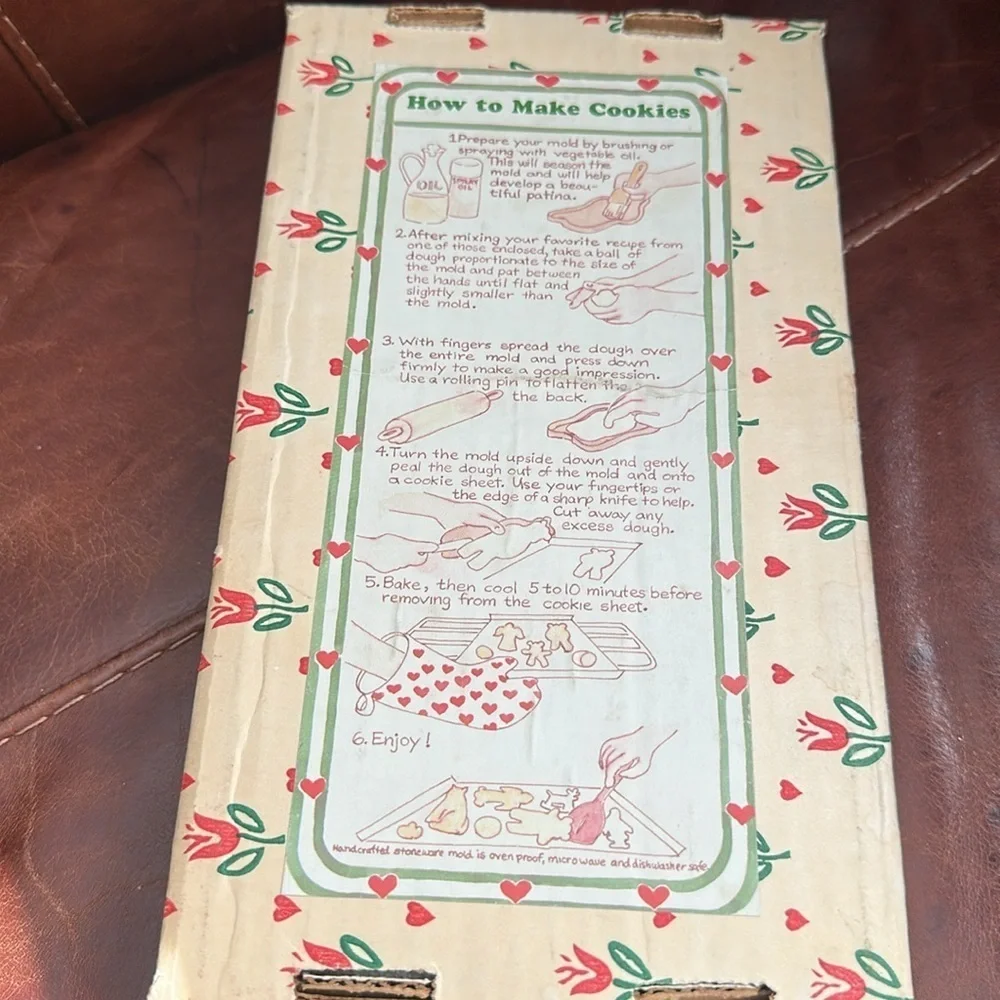 How to Make Cookies
1.Prepare your mold by brushing or
spraying with vegetable oil.
This will season the
mold and will help
develop a beau-
tiful patina.
OIL
SPRAY
OIL
2.After mixing your favorite recipe from
one of those enclosed, take a ball of
dough proportionate to the size of
the mold and pat between
the hands until flat and
slightly smaller than
the mold.
3. With fingers spread the dough over
the entire mold and press down
firmly to make a good impression.
Use a rolling pin to flatten the
the back.
4.Turn the mold upside down and gently
peal the dough out of the mold and onto
a cookie sheet. Use your fingertips or
the edge of a sharp knife to help.
Cut away any
excess dough.
5. Bake, then cool 5 to 10 minutes before
removing from the cookie sheet.
6. Enjoy!
Handcrafted stoneware mold is oven proof, microwave and dishwasher safe.